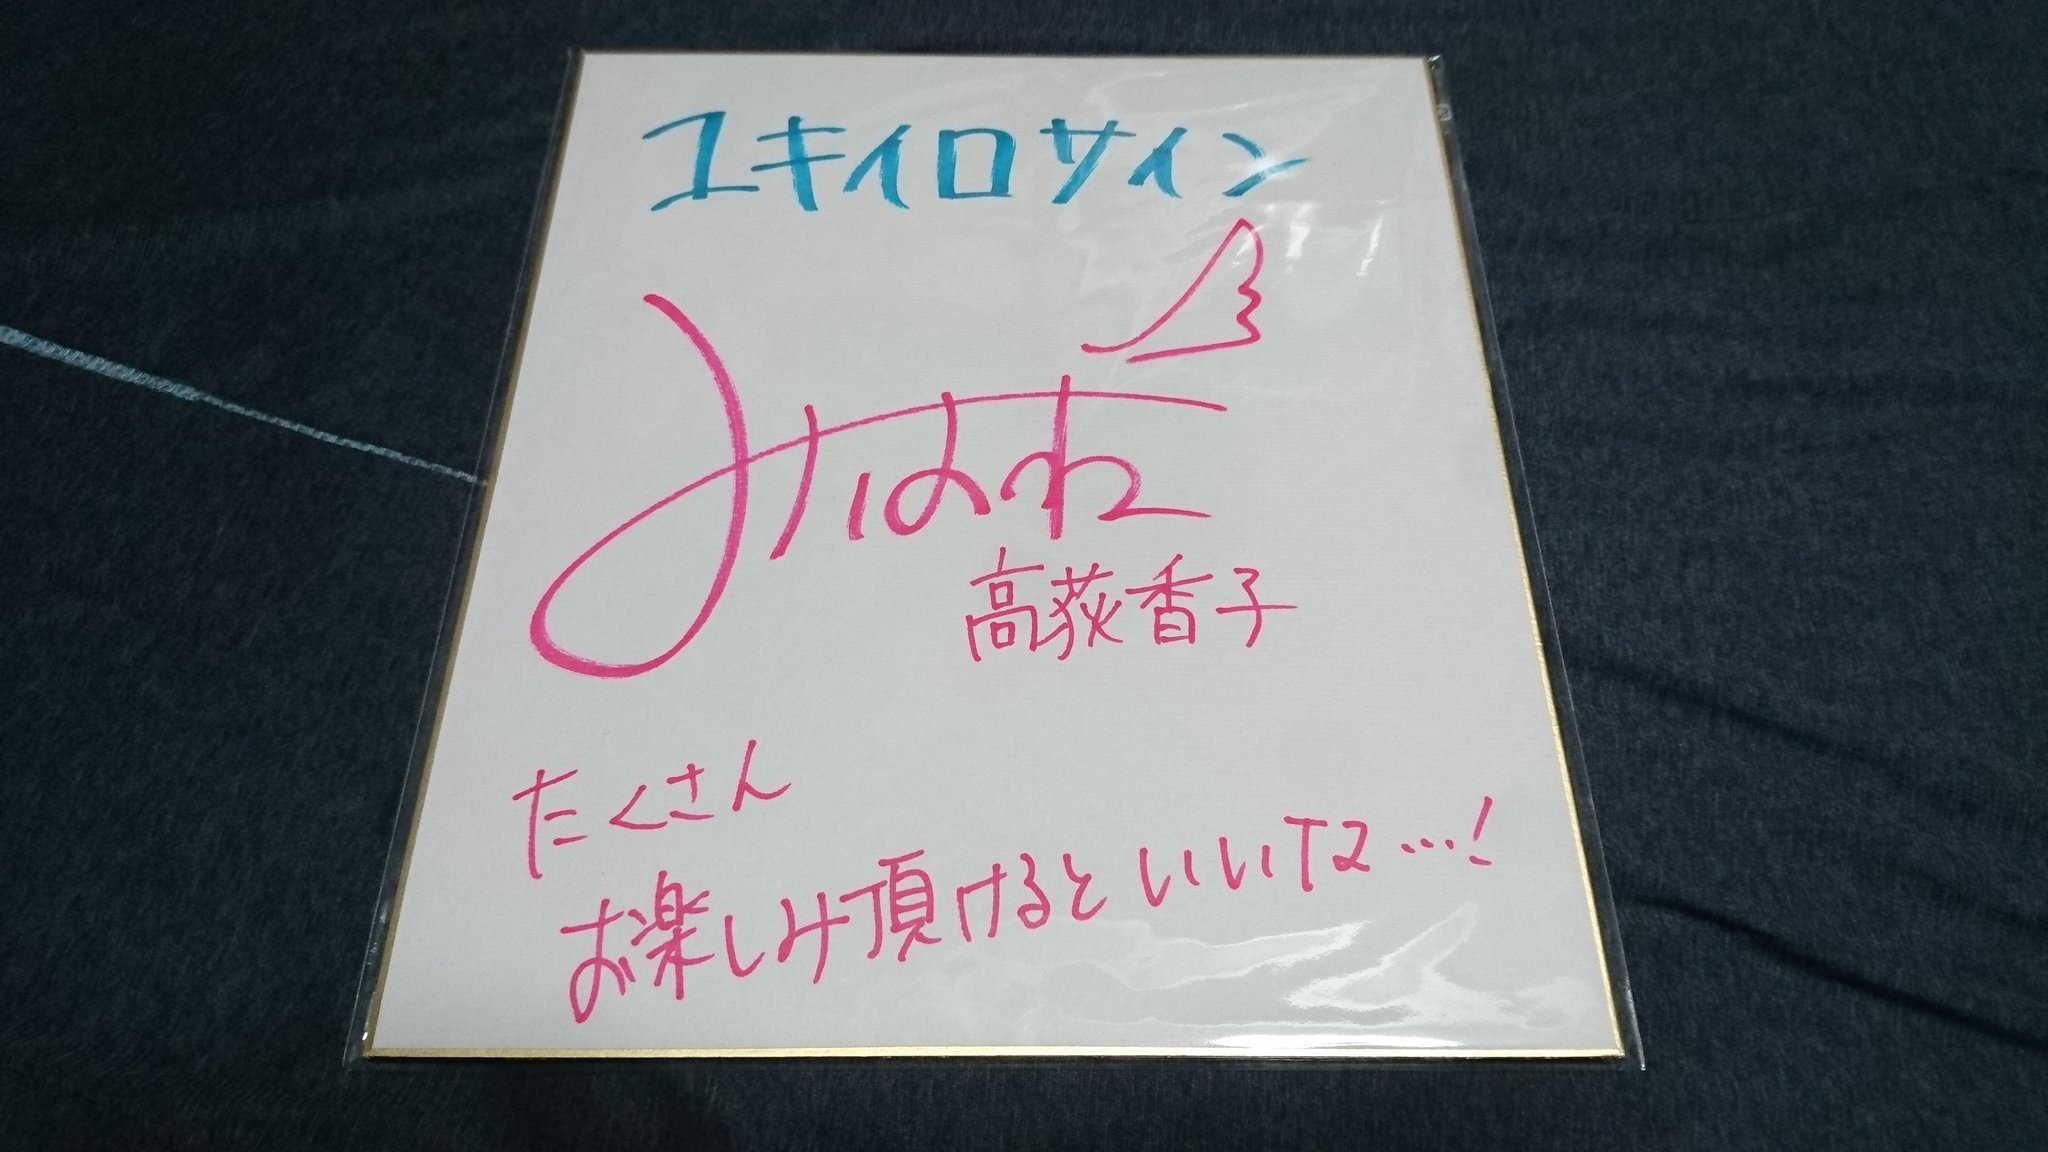 ユキイロサイン
みはね
高荻香子
たくさん
お楽しみ頂けるといいな…!